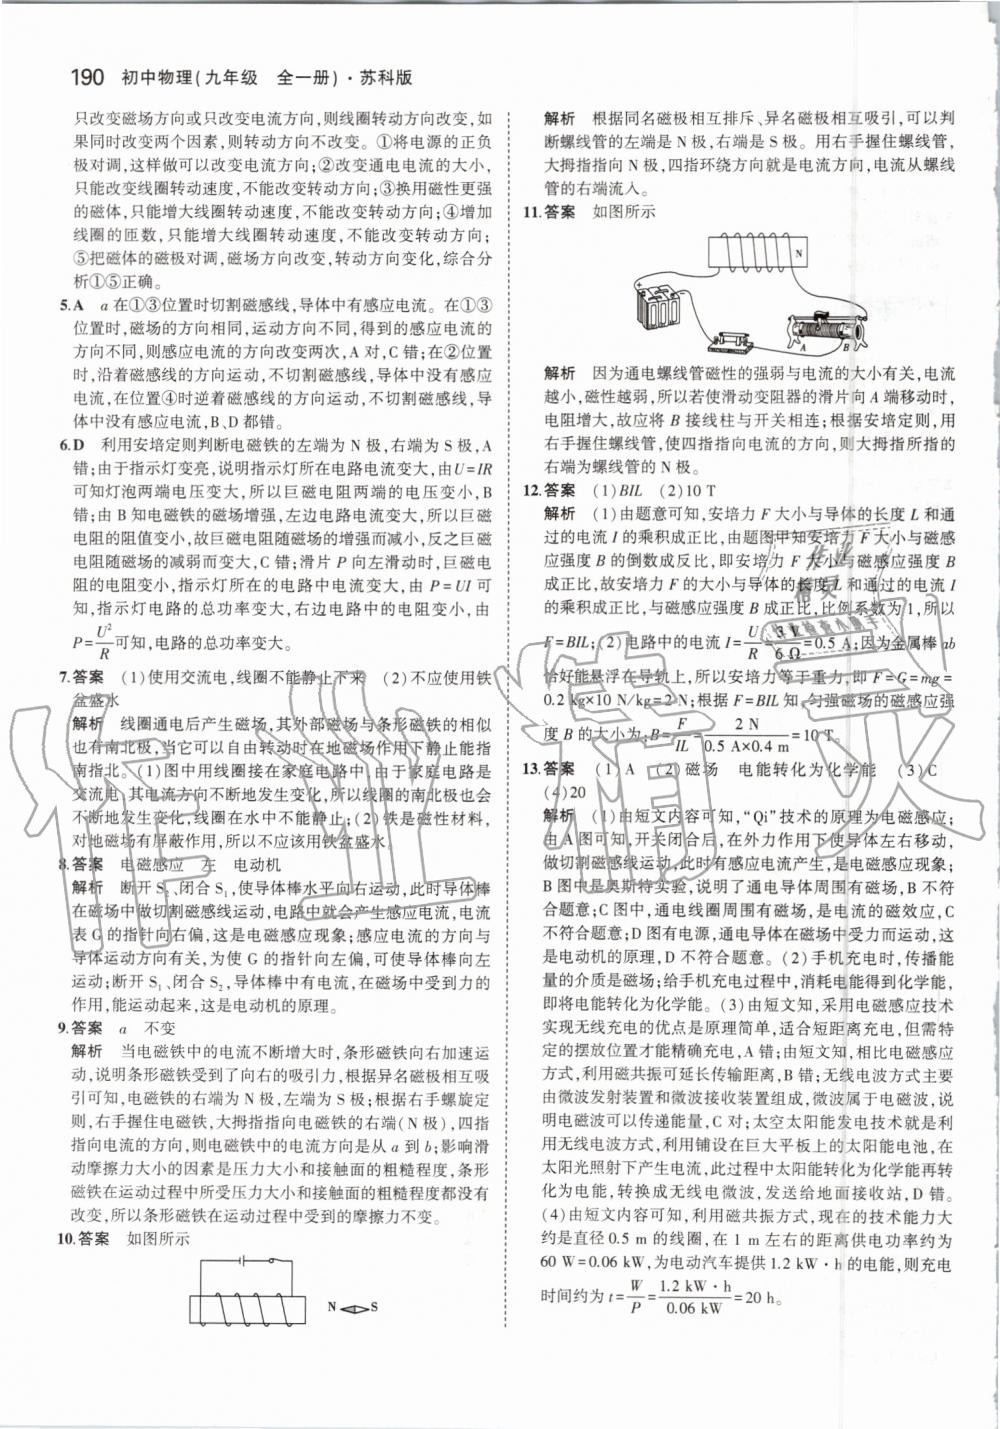 190 初中物理(九年级 全一册)·苏科版
只改变磁场方向或只改变电流方向,则线圈转动方向改变,如
果同时改变两个因素,则转动方向不改变。①将电源的正负
极对调,这样做可以改变电流方向;②改变通电电流的大小,
只能改变线圈转动速度,不能改变转动方向;③换用磁性更强
的磁体,只能增大线圈转动速度,不能改变转动方向;④增加
线圈的匝数,只能增大线圈转动速度,不能改变转动方向;
⑤把磁体的磁极对调,磁场方向改变,转动方向变化,综合分
析①⑤正确。
5.A a在①③位置时切割磁感线,导体中有感应电流。在①③
位置时,磁场的方向相同,运动方向不同,得到的感应电流的
方向不同,则感应电流的方向改变两次,A对,C错;在②位置
时,沿着磁感线的方向运动,不切割磁感线,导体中没有感应
电流,在位置④时逆着磁感线的方向运动,不切割磁感线,导
体中没有感应电流,B、D都错。
6.D 利用安培定则判断电磁铁的左端为N极,右端为S极,A
错;由于指示灯变亮,说明指示灯所在电路电流变大,由U=IR
可知灯泡两端电压变大,所以巨磁电阻两端的电压变小,B
错;由B知电磁铁的磁场增强,左边电路电流变大,所以巨磁
电阻的阻值变小,故巨磁电阻随磁场的增强而减小,反之巨磁
电阻随磁场的减弱而变大,C错;滑片P向左滑动时,巨磁电
阻的电阻变小,指示灯所在的电路中电流变大,由P=UI可
知,指示灯电路的总功率变大,右边电路中的电阻变小,由
P=U²/R可知,电路的总功率变大。
7.答案 (1)使用交流电,线圈不能静止下来 (2)不应使用铁
盆盛水
解析 线圈通电后产生磁场,其外部磁场与条形磁铁的相似
也有南北极,当它可以自由转动时在地磁场作用下静止能指
南指北。(1)图中用线圈接在家庭电路中,由于家庭电路是
交流电,其电流方向不断地发生变化,所以线圈的南北极也会
不断地发生变化,线圈在水中不能静止;(2)铁是磁性材料,
对地磁场有屏蔽作用,所以不应该用铁盆盛水。
8.答案 电磁感应 左 电动机
解析 断开S₂、闭合S₁,使导体棒水平向右运动,此时导体棒
在磁场中做切割磁感线运动,电路中就会产生感应电流,电流
表G的指针向右偏,这是电磁感应现象;感应电流的方向与
导体运动方向有关,为使G的指针向左偏,可使导体棒向左
运动;断开S₁、闭合S₂,导体棒中有电流,在磁场中受到力的
作用,能运动起来,这是电动机的原理。
9.答案 a 不变
解析 当电磁铁中的电流不断增大时,条形磁铁向右加速运
动,说明条形磁铁受到了向右的吸引力,根据异名磁极相互吸
引可知,电磁铁的右端为N极,左端为S极;根据右手螺旋定
则,右手握住电磁铁,大拇指指向电磁铁的右端(N极),四指
指向电流的方向,则电磁铁中的电流方向是从a到b;影响滑
动摩擦力大小的因素是压力大小和接触面的粗糙程度,条形
磁铁在运动过程中所受压力大小和接触面的粗糙程度都没有
改变,所以条形磁铁在运动过程中受到的摩擦力不变。
10.答案 如图所示
N S
解析 根据同名磁极相互排斥、异名磁极相互吸引,可以判
断螺线管的左端是N极,右端是S极。用右手握住螺线管,
大拇指指向N极,四指环绕方向就是电流方向,电流从螺线
管的右端流入。
11.答案 如图所示
N
+ -
A B
解析 因为通电螺线管磁性的强弱与电流的大小有关,电流
越小,磁性越弱,所以若使滑动变阻器的滑片向A端移动时,
电阻增大,故应将B接线柱与开关相连;根据安培定则,用
右手握住螺线管,使四指指向电流的方向,则大拇指所指的
右端为螺线管的N极。
12.答案 (1)BIL (2)10 T
解析 (1)由题意可知,安培力F大小与导体的长度L和通
过的电流I的乘积成正比,由题图甲知安培力F大小与磁感
应强度B的倒数成反比,即安培力F大小与磁感应强度B
成正比,故安培力F的大小与导体的长度L和通过的电流I
的乘积成正比,与磁感应强度B成正比,比例系数为1,所以
F=BIL;(2)电路中的电流I=U/R=3 V/6 Ω=0.5 A;因为金属棒ab
恰好能悬浮在导轨上,所以安培力等于重力,即F=G=mg=
0.2 kg×10 N/kg=2 N;根据F=BIL知,匀强磁场的磁感应强
度B的大小为:B=F/IL=2 N/(0.5 A×0.4 m)=10 T。
13.答案 (1)A (2)磁场 电能转化为化学能 (3)C
(4)20
解析 (1)由短文内容可知,“Qi”技术的原理为电磁感应;
由A图可知,开关闭合后,在外力作用下使导体左右移动,
做切割磁感线运动,此时有感应电流产生,是电磁感应现象;
B图中是奥斯特实验,说明了通电导体周围有磁场,B不符
合题意;C图中,通电线圈周围有磁场,是电流的磁效应,C
不符合题意;D图有电源,通电导体在磁场中受力而运动,这
是电动机的原理,D不符合题意。(2)手机充电时,传递能
量的介质是磁场;给手机充电过程中,消耗电能得到化学能,
即将电能转化为化学能。(3)由短文知,采用电磁感应技术
实现无线充电的优点是原理简单,适合短距离充电,但需特
定的摆放位置才能精确充电,A错;由短文知,相比电磁感应
方式,利用磁共振可延长传输距离,B错;无线电波方式主要
由微波发射装置和微波接收装置组成,微波属于电磁波,说
明电磁波可以传递能量,C对;太空太阳能发电技术就是利
用无线电波方式,利用铺设在巨大平板上的太阳能电池,在
太阳光照射下产生电流,此过程中太阳能转化为化学能再转
化为电能,转换成无线电微波,发送给地面接收站,D错。
(4)由短文内容可知,利用磁共振方式,现在的技术能力大
约是直径0.5 m的线圈,在1 m左右的距离供电功率约为
60 W=0.06 kW,为电动汽车提供1.2 kW·h的电能,则充电
时间约为t=W/P=1.2 kW·h/0.06 kW=20 h。
作业精灵